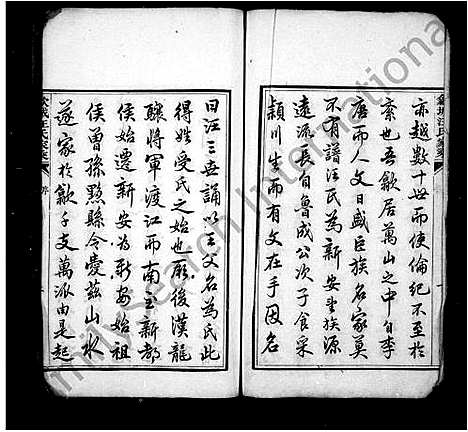 歙城汪氏家乘
亦越數十世而使倫紀不至於
紊也吾歙居萬山之中自李
唐而人文日盛巨族名家莫
不有譜汪氏為新安望族源
遠流長自魯成公次子食采
潁川生而有文在手因名
曰汪三世誦以王父名為氏此
得姓受氏之始也厥後漢龍
驤將軍渡江而南主新都
侯始遷新安為新安始祖
侯曾孫黟縣令愛茲山水
遂家於歙千支萬派由是起
歙城汪氏家乘 序
FamilySearch International